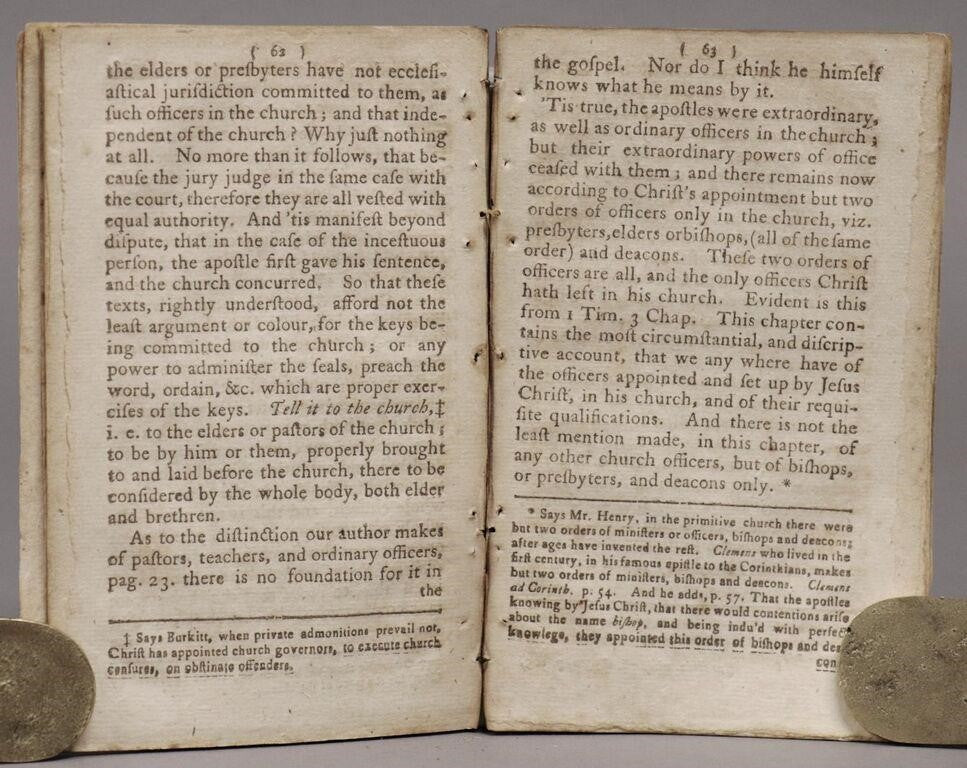 ( 62 )
the elders or preſbyters have not eccleſi-
aſtical juriſdiction committed to them, as
ſuch officers in the church; and that inde-
pendent of the church? Why juſt nothing
at all. No more than it follows, that be-
cauſe the jury judge in the ſame caſe with
the court, therefore they are all veſted with
equal authority. And 'tis manifeſt beyond
diſpute, that in the caſe of the inceſtuous
perſon, the apoſtle firſt gave his ſentence,
and the church concurred. So that theſe
texts, rightly underſtood, afford not the
leaſt argument or colour, for the keys be-
ing committed to the church; or any
power to adminiſter the ſeals, preach the
word, ordain, &c. which are proper exer-
ciſes of the keys. Tell it to the church,‡
i. e. to the elders or paſtors of the church;
to be by him or them, properly brought
to and laid before the church, there to be
conſidered by the whole body, both elder
and brethren.
As to the diſtinction our author makes
of paſtors, teachers, and ordinary officers,
pag. 23. there is no foundation for it in
the
‡ Says Burkitt, when private admonitions prevail not,
Chriſt has appointed church governors, to execute church
cenſures, on obſtinate offenders.
( 63 )
the goſpel. Nor do I think he himſelf
knows what he means by it.
'Tis true, the apoſtles were extraordinary,
as well as ordinary officers in the church;
but their extraordinary powers of office
ceaſed with them; and there remains now
according to Chriſt's appointment but two
orders of officers only in the church, viz.
preſbyters,elders orbiſhops,(all of the ſame
order) and deacons. Theſe two orders of
officers are all, and the only officers Chriſt
hath left in his church. Evident is this
from 1 Tim. 3 Chap. This chapter con-
tains the moſt circumſtantial, and diſcrip-
tive account, that we any where have of
the officers appointed and ſet up by Jeſus
Chriſt, in his church, and of their requi-
ſite qualifications. And there is not the
leaſt mention made, in this chapter, of
any other church officers, but of biſhops,
or preſbyters, and deacons only. *
* Says Mr. Henry, in the primitive church there were
but two orders of miniſters or officers, biſhops and deacons;
after ages have invented the reſt. Clemens who lived in the
firſt century, in his famous epiſtle to the Corinthians, makes
but two orders of miniſters, biſhops and deacons. Clemens
ad Corinth. p. 54. And he adds, p. 57. That the apoſtles
knowing by Jeſus Chriſt, that there would contentions ariſe
about the name biſhop, and being indu'd with perfect
knowlege, they appointed this order of biſhops and dea
con